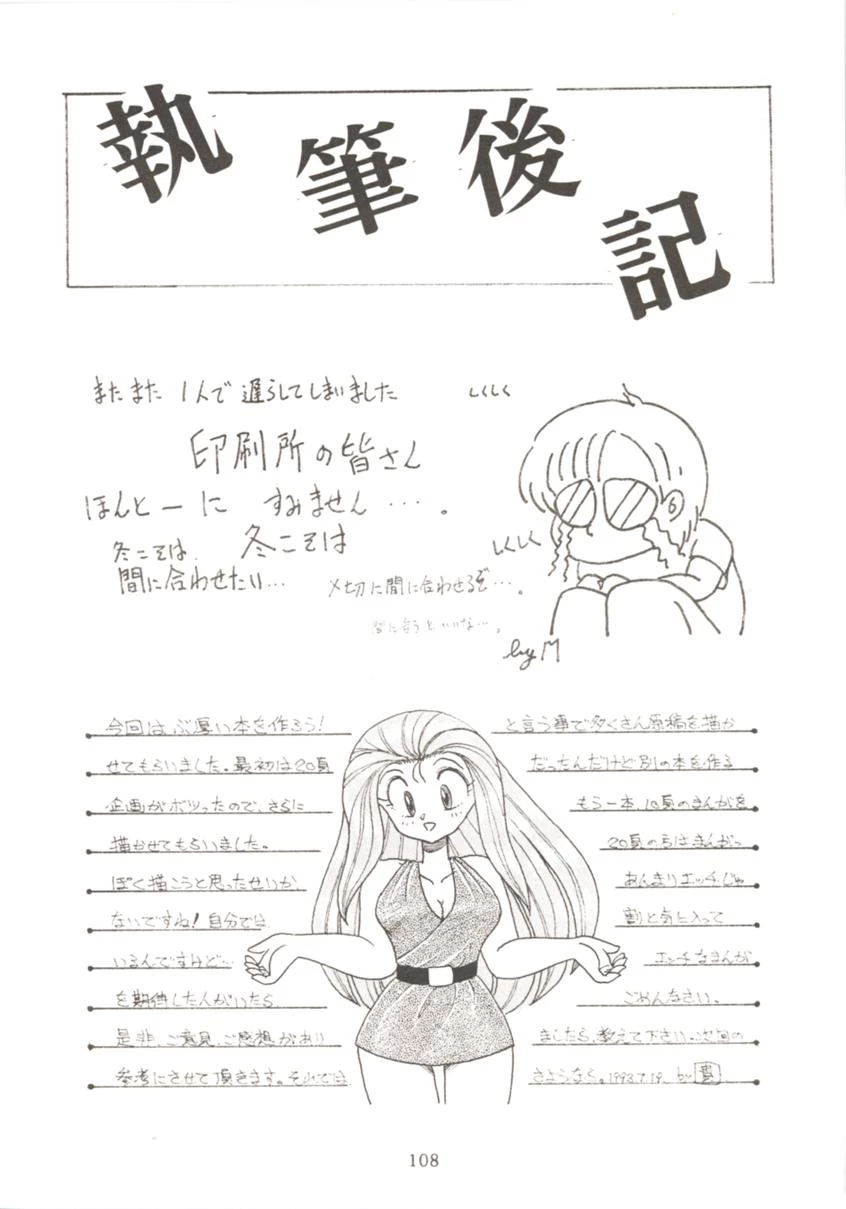 執筆後記
またまた 1人で遅らしてしまいました
しくしく
印刷所の皆さん
ほんとーに すみません…。
冬こそは
冬こそは
間に合わせたい…
〆切に間に合わせるぞ…。
しくしく
間に合うといいな…。
by M
今回はぶ厚い本を作ろう! と言う事で多くさん原稿を描か
せてもらいました。最初は20頁 だったんだけど別の本を作る
企画がボツったので、さらに もう一本、10頁のまんがを
描かせてもらいました。 20頁の方はまんがっ
ぽく描こうと思ったせいか あんまりエッチじゃ
ないですね! 自分では 割と気に入って
いるんですけど… エッチなまんが
を期待した人がいたら ごめんなさい。
是非、ご意見、ご感想があり ましたら、教えて下さい。次回の
参考にさせて頂きます。それでは さようなら。1993.7.19. by 貴
108